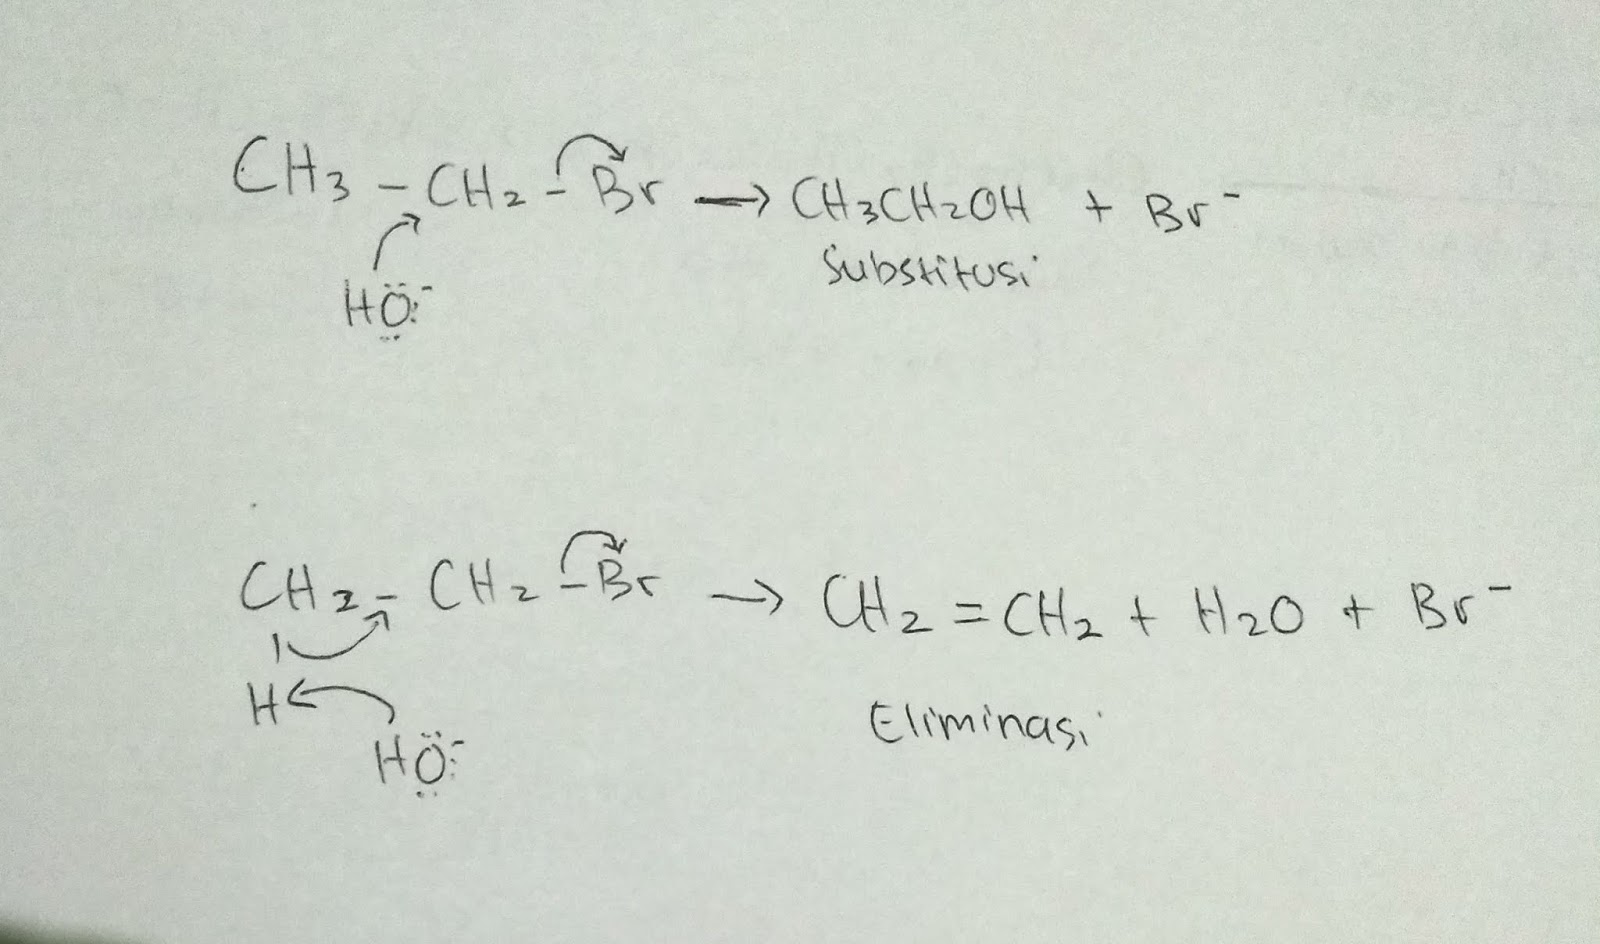 CH₃ - CH₂ - Br → CH₃CH₂OH + Br⁻
Substitusi
HÖ:⁻
CH₂ - CH₂ - Br → CH₂ = CH₂ + H₂O + Br⁻
H
Eliminasi
HÖ:⁻